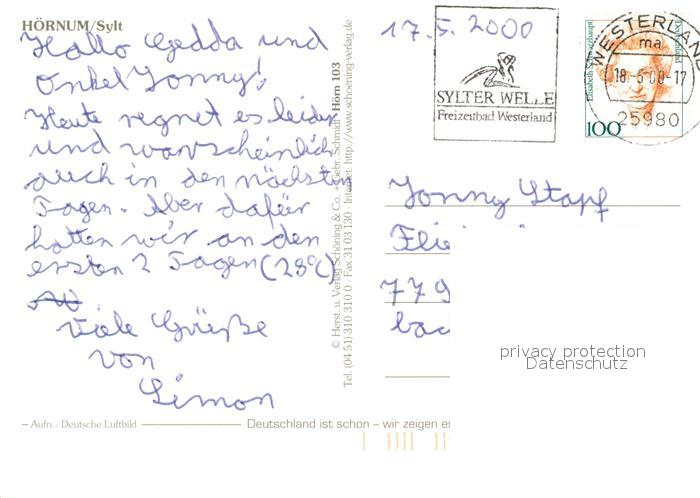 HÖRNUM/Sylt
Hallo Gedda und
Onkel Jonny!
Heute regnet es leider
und warscheinlich
auch in den nächsten
Tagen. Aber dafür
hatten wir an den
ersten 2 Tagen (28°C)
Viele Grüße
von
Simon
– Aufn.: Deutsche Luftbild
Deutschland ist schön – wir zeigen es
© Herst. u. Verlag Schöning & Co. + Gebr. Schmidt • Hörn 103
Tel. (04 51) 310 310 0 · Fax 31 03 130 · Internet: http://www.schoening-verlag.de
17.5.2000
SYLTER WELLE
Freizeitbad Westerland
Elisabeth Schwarzhaupt
Deutschland
100
WESTERLAND
ma
18.-5.00-17
25980
Jonny Stapf
Flie
779
bac
privacy protection
Datenschutz